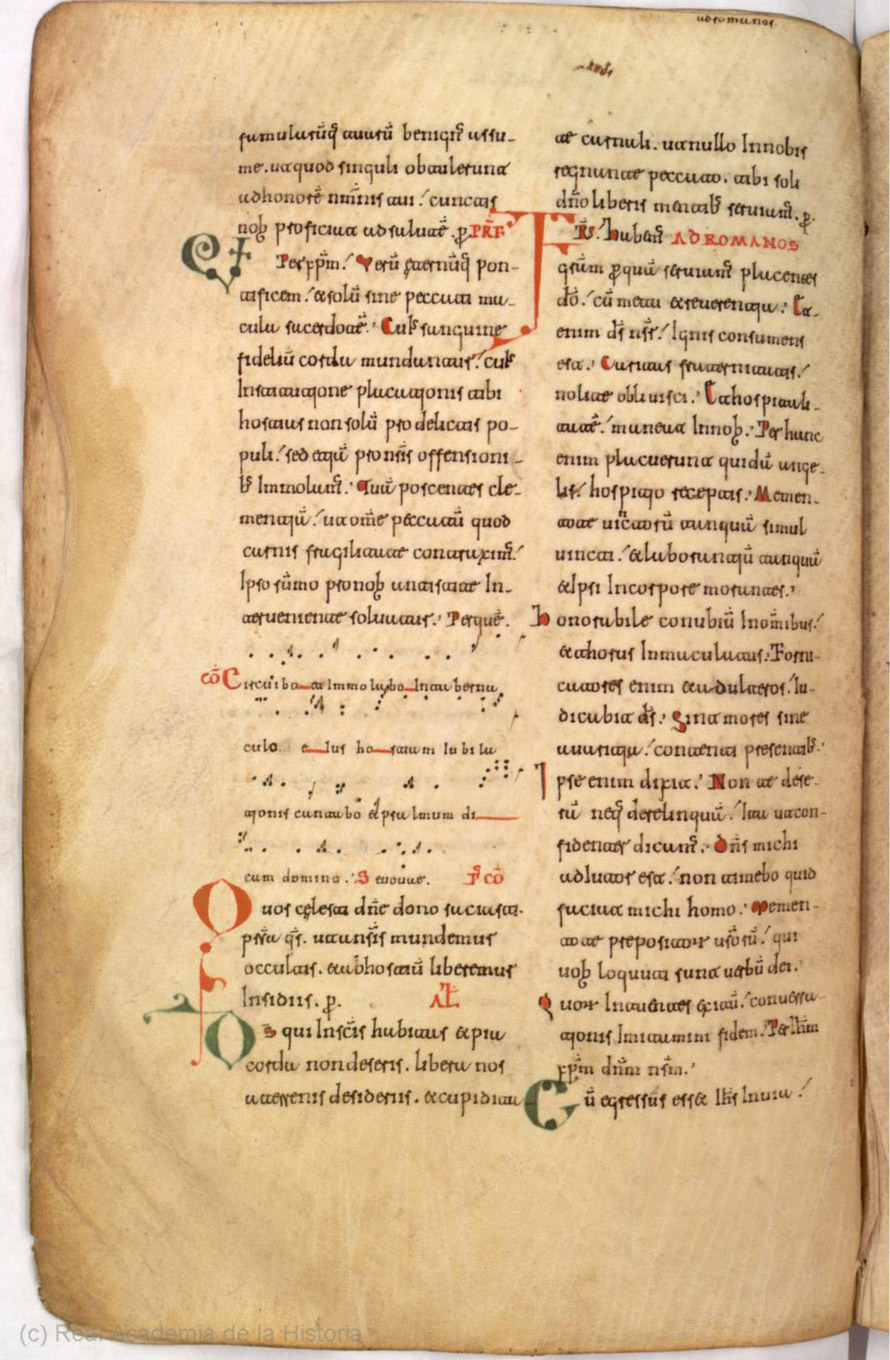 ad romanos
famulorūq; tuorū benignꝰ assu-
me. ut quod singuli obtulerunt
ad honorē nōīnis tui / cunctis
nob proficiat ad salutē. p. PRF
Per xp̄m / Verū ęternūq; pon-
tificem / & solū sine peccati ma-
cula sacerdotē. Cuiꝰ sanguine
fideliū corda mundantur / cuiꝰ
Institutione placationis tibi
hostias non solū pro delictis po-
puli / sed etiā pro nr̄is offensioni-
bꝰ Immolamꝰ. Tuā poscentes cle-
mentiā / ut om̄e peccatū quod
carnis fragilitate contraximꝰ /
Ipso sūmo pro nob antistite In-
terueniente soluatur. Per quē.
cō Circuibo et Immolabo In taberna
culo eius hostiam Iubila
tionis cantabo & psalmum di
cam domino. Seuouae. P cō
Quos cęlesti dn̄e dono satiasti
pr̄sta qs̄. ut a nr̄is mundemur
occultis. & ab hostiū liberemur
Insidiis. p. AL
Ds̄ qui In scīs habitas & pia
corda non deseris. libera nos
a terrenis desideriis. & cupiditate
ut nullo In nobis
regnante peccato. tibi soli
dn̄o liberis mentibꝰ seruiamꝰ. p.
FRS. habemꝰ AD ROMANOS
grām per quā seruiamꝰ placentes
dō / cū metu & reuerentia. Et-
enim ds̄ nr̄ / Ignis consumens
est. Caritas fraternitatis /
nolite obliuisci. Et hospitali-
tatē / maneat In nob. Per hanc
enim placuerunt quidā ange-
lis / hospitio receptis. Memen-
tote uīctorū tanquā simul
uincti / & laborantiū tanquā
& ipsi In corpore morantes.
honorabile conubiū In omībus /
& thorus Inmaculatus. Forni-
catores enim & adulteros / Iu-
dicabit ds̄. Sint mores sine
auaritia / contenti presentibꝰ.
Ipse enim dixit. Non te dese-
rā neq; derelinquā / Ita ut con-
fidenter dicamꝰ. Dn̄s michi
adiutor est / non timebo quid
faciat michi homo. Memen-
tote prepositorum ur̄orū / qui
uob locuti sunt uerbū dei.
Quorum Intuentes exitū / conuersa-
tionis Imitamini fidem. Per Ihm̄
xp̄m dn̄m nr̄m.
Cū egressus esset Ihs̄ In uia /
(c) Real Academia de la Historia